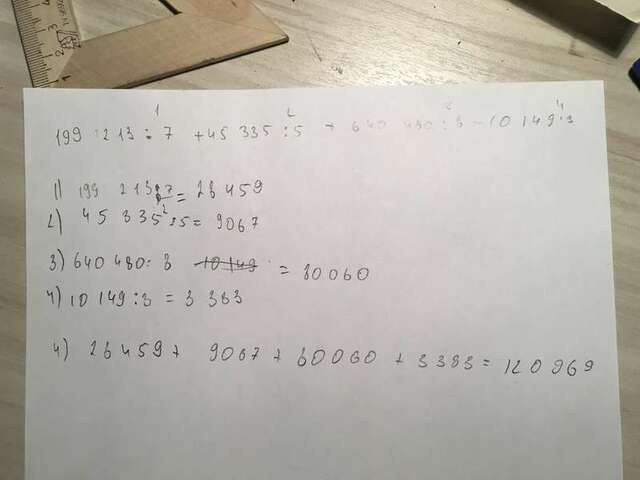 1 2 3 4
199 213 : 7 + 45 335 : 5 + 640 480 : 8 - 10 149 : 3
1) 199 213 : 7 = 28 459
2) 45 335 : 5 = 9067
3) 640 480 : 8 = 80060
4) 10 149 : 3 = 3 383
4) 28 459 + 9067 + 80060 + 3383 = 120 969